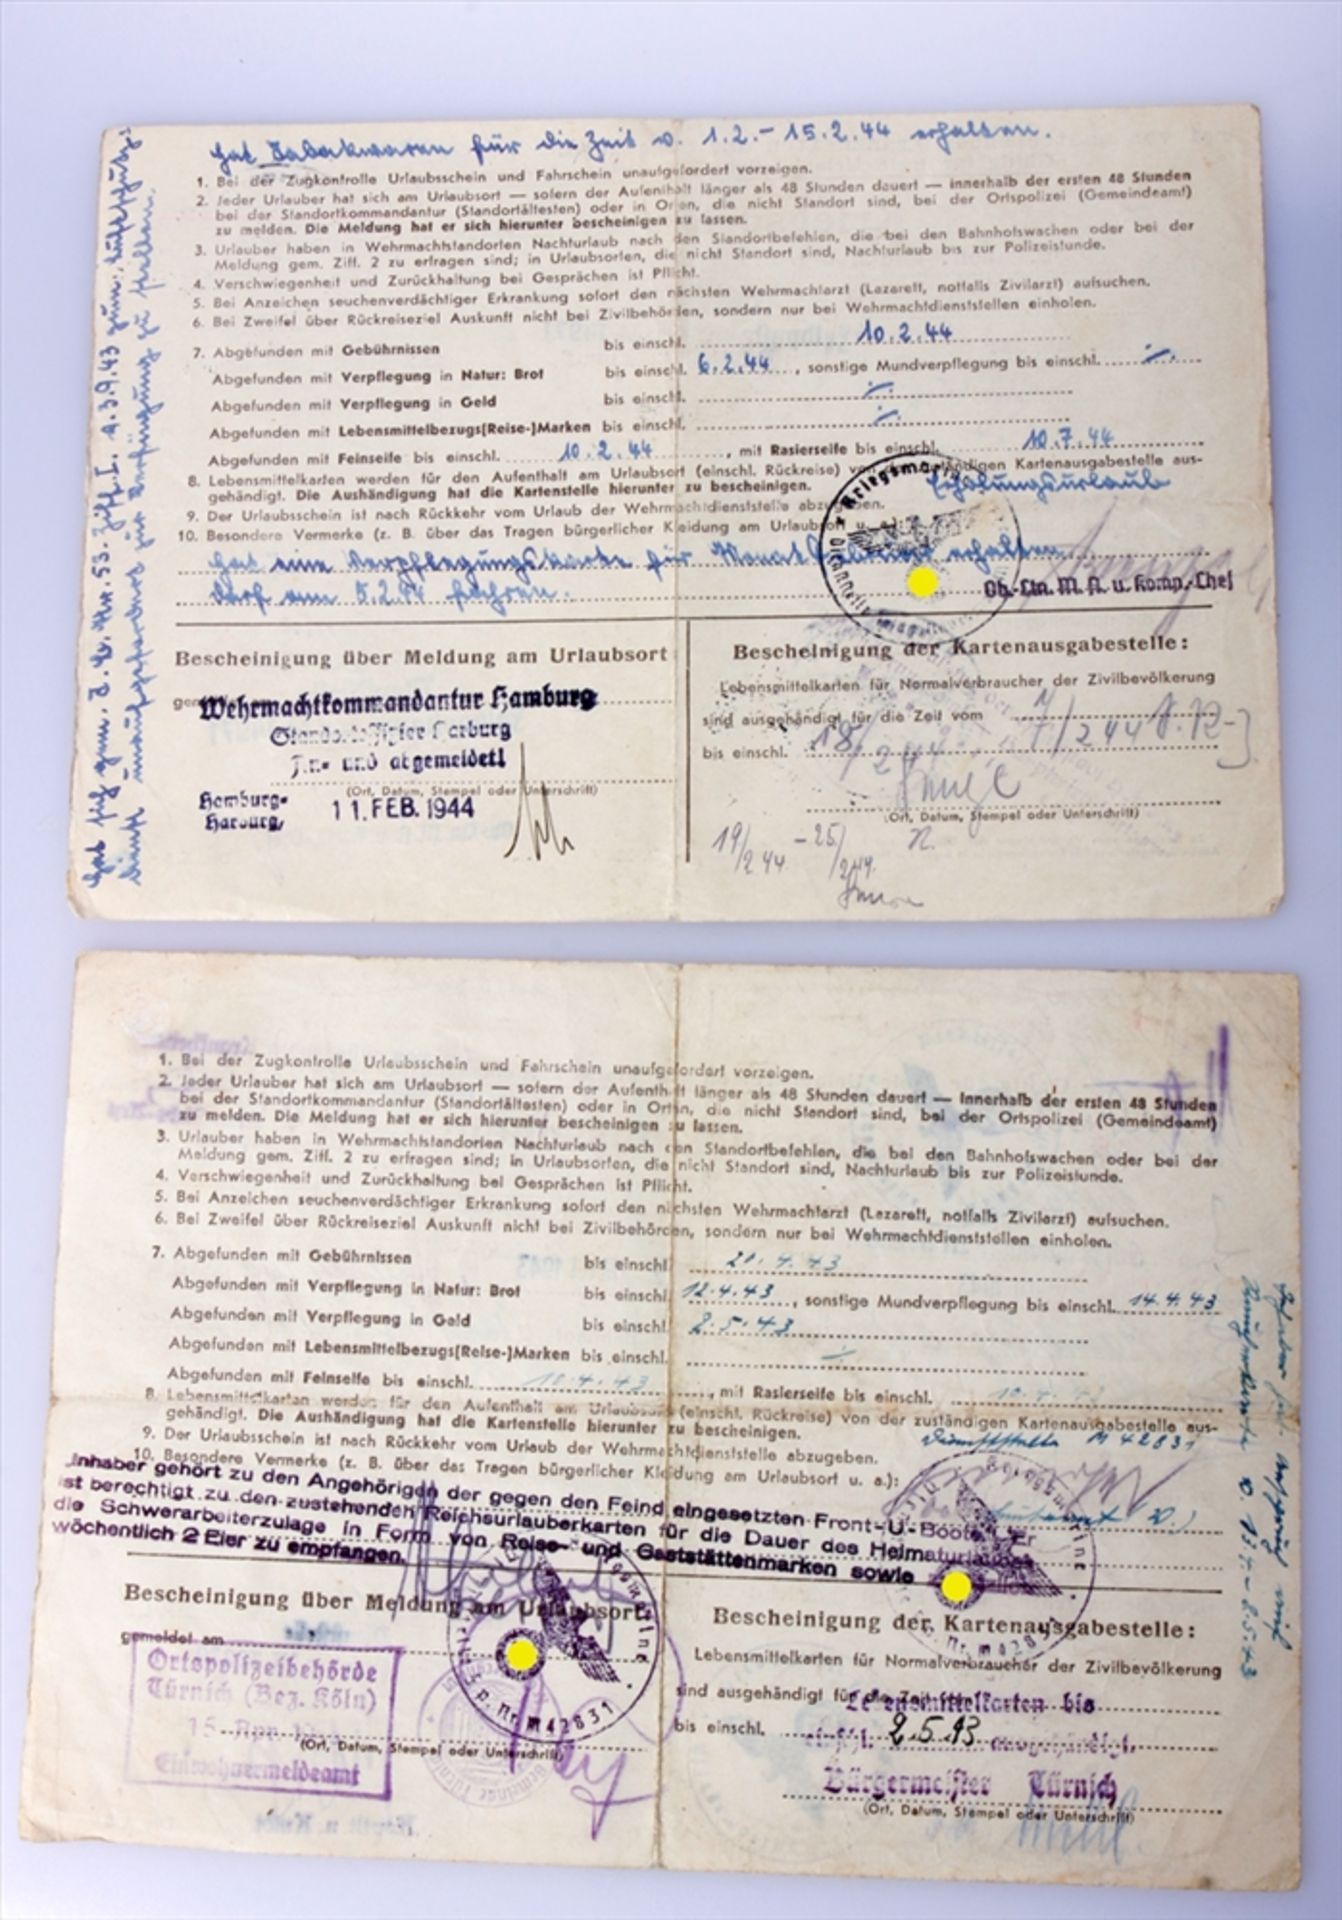 hat Tabakwaren für die Zeit v. 1.2. - 15.2.44 erhalten.
1. Bei der Zugkontrolle Urlaubsschein und Fahrschein unaufgefordert vorzeigen.
2. Jeder Urlauber hat sich am Urlaubsort — sofern der Aufenthalt länger als 48 Stunden dauert — innerhalb der ersten 48 Stunden
bei der Standortkommandantur (Standortältesten) oder in Orten, die nicht Standort sind, bei der Ortspolizei (Gemeindeamt)
zu melden. Die Meldung hat er sich hierunter bescheinigen zu lassen.
3. Urlauber haben in Wehrmachtstandorten Nachturlaub nach den Standortbefehlen, die bei den Bahnhofswachen oder bei der
Meldung gem. Ziff. 2 zu erfragen sind; in Urlaubsorten, die nicht Standort sind, Nachturlaub bis zur Polizeistunde.
4. Verschwiegenheit und Zurückhaltung bei Gesprächen ist Pflicht.
5. Bei Anzeichen seuchenverdächtiger Erkrankung sofort den nächsten Wehrmachtarzt (Lazarett, notfalls Zivilarzt) aufsuchen.
6. Bei Zweifel über Rückreiseziel Auskunft nicht bei Zivilbehörden, sondern nur bei Wehrmachtdienststellen einholen.
7. Abgefunden mit Gebührnissen bis einschl. 10.2.44
Abgefunden mit Verpflegung in Natur: Brot bis einschl. 6.2.44, sonstige Mundverpflegung bis einschl. ./.
Abgefunden mit Verpflegung in Geld bis einschl. ./.
Abgefunden mit Lebensmittelbezugs(Reise-)Marken bis einschl. ./.
Abgefunden mit Feinseife bis einschl. 10.2.44, mit Rasierseife bis einschl. 10.7.44
8. Lebensmittelkarten werden für den Aufenthalt am Urlaubsort (einschl. Rückreise) von der zuständigen Kartenausgabestelle aus-
gehändigt. Die Aushändigung hat die Kartenstelle hierunter zu bescheinigen. Erholungsurlaub
9. Der Urlaubsschein ist nach Rückkehr vom Urlaub der Wehrmachtdienststelle abzugeben.
10. Besondere Vermerke (z. B. über das Tragen bürgerlicher Kleidung am Urlaubsort u. a.):
hat eine Verpflegungskarte für Monat Februar erhalten
darf am 5.2.44 fahren.
Kriegsmarine
Ob.-Ltn. M. A. u. Komp.-Chef
Bescheinigung über Meldung am Urlaubsort
Wehrmachtkommandantur Hamburg
Standortoffizier Harburg
An- und abgemeldet!
(Ort, Datum, Stempel oder Unterschrift)
Hamburg-
Harburg,
11. FEB. 1944
Bescheinigung der Kartenausgabestelle:
Lebensmittelkarten für Normalverbraucher der Zivilbevölkerung
sind ausgehändigt für die Zeit vom
bis einschl. 18/2 44
(Ort, Datum, Stempel oder Unterschrift)
19/2 44 - 25/2 44
1. Bei der Zugkontrolle Urlaubsschein und Fahrschein unaufgefordert vorzeigen.
2. Jeder Urlauber hat sich am Urlaubsort — sofern der Aufenthalt länger als 48 Stunden dauert — innerhalb der ersten 48 Stunden
bei der Standortkommandantur (Standortältesten) oder in Orten, die nicht Standort sind, bei der Ortspolizei (Gemeindeamt)
zu melden. Die Meldung hat er sich hierunter bescheinigen zu lassen.
3. Urlauber haben in Wehrmachtstandorten Nachturlaub nach den Standortbefehlen, die bei den Bahnhofswachen oder bei der
Meldung gem. Ziff. 2 zu erfragen sind; in Urlaubsorten, die nicht Standort sind, Nachturlaub bis zur Polizeistunde.
4. Verschwiegenheit und Zurückhaltung bei Gesprächen ist Pflicht.
5. Bei Anzeichen seuchenverdächtiger Erkrankung sofort den nächsten Wehrmachtarzt (Lazarett, notfalls Zivilarzt) aufsuchen.
6. Bei Zweifel über Rückreiseziel Auskunft nicht bei Zivilbehörden, sondern nur bei Wehrmachtdienststellen einholen.
7. Abgefunden mit Gebührnissen bis einschl. 20.4.43
Abgefunden mit Verpflegung in Natur: Brot bis einschl. 12.4.43, sonstige Mundverpflegung bis einschl. 14.4.43
Abgefunden mit Verpflegung in Geld bis einschl. 2.5.43
Abgefunden mit Lebensmittelbezugs(Reise-)Marken bis einschl. ./.
Abgefunden mit Feinseife bis einschl. 10.4.43, mit Rasierseife bis einschl.
8. Lebensmittelkarten werden für den Aufenthalt am Urlaubsort (einschl. Rückreise) von der zuständigen Kartenausgabestelle aus-
gehändigt. Die Aushändigung hat die Kartenstelle hierunter zu bescheinigen.
9. Der Urlaubsschein ist nach Rückkehr vom Urlaub der Wehrmachtdienststelle abzugeben.
Dienststelle M 42831
10. Besondere Vermerke (z. B. über das Tragen bürgerlicher Kleidung am Urlaubsort u. a.):
Inhaber gehört zu den Angehörigen der gegen den Feind eingesetzten Front-U-Boote. Er
ist berechtigt zu den zustehenden Reichsurlauberkarten für die Dauer des Heimaturlaubes
die Schwerarbeiterzulage in Form von Reise- und Gaststättenmarken sowie
wöchentlich 2 Eier zu empfangen.
Bescheinigung über Meldung am Urlaubsort:
gemeldet am
Ortspolizeibehörde
Türnich (Bez. Köln)
15. Apr.
Einwohnermeldeamt
(Ort, Datum, Stempel oder Unterschrift)
p. Nr. M 42831
Gemeinde Türnich
Bescheinigung der Kartenausgabestelle:
Lebensmittelkarten für Normalverbraucher der Zivilbevölkerung
sind ausgehändigt für die Zeit
Lebensmittelkarten bis
bis einschl. einschl. 2.5.43 ausgehändigt.
Bürgermeister Türnich
(Ort, Datum, Stempel oder Unterschrift)